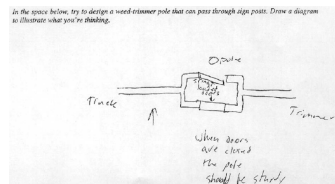 In the space below, try to design a weed-trimmer pole that can pass through sign posts. Draw a diagram
to illustrate what you're thinking.
O pole
spring
loaded
doors
Truck
Trimmer
when doors
are closed
the pole
should be sturdy